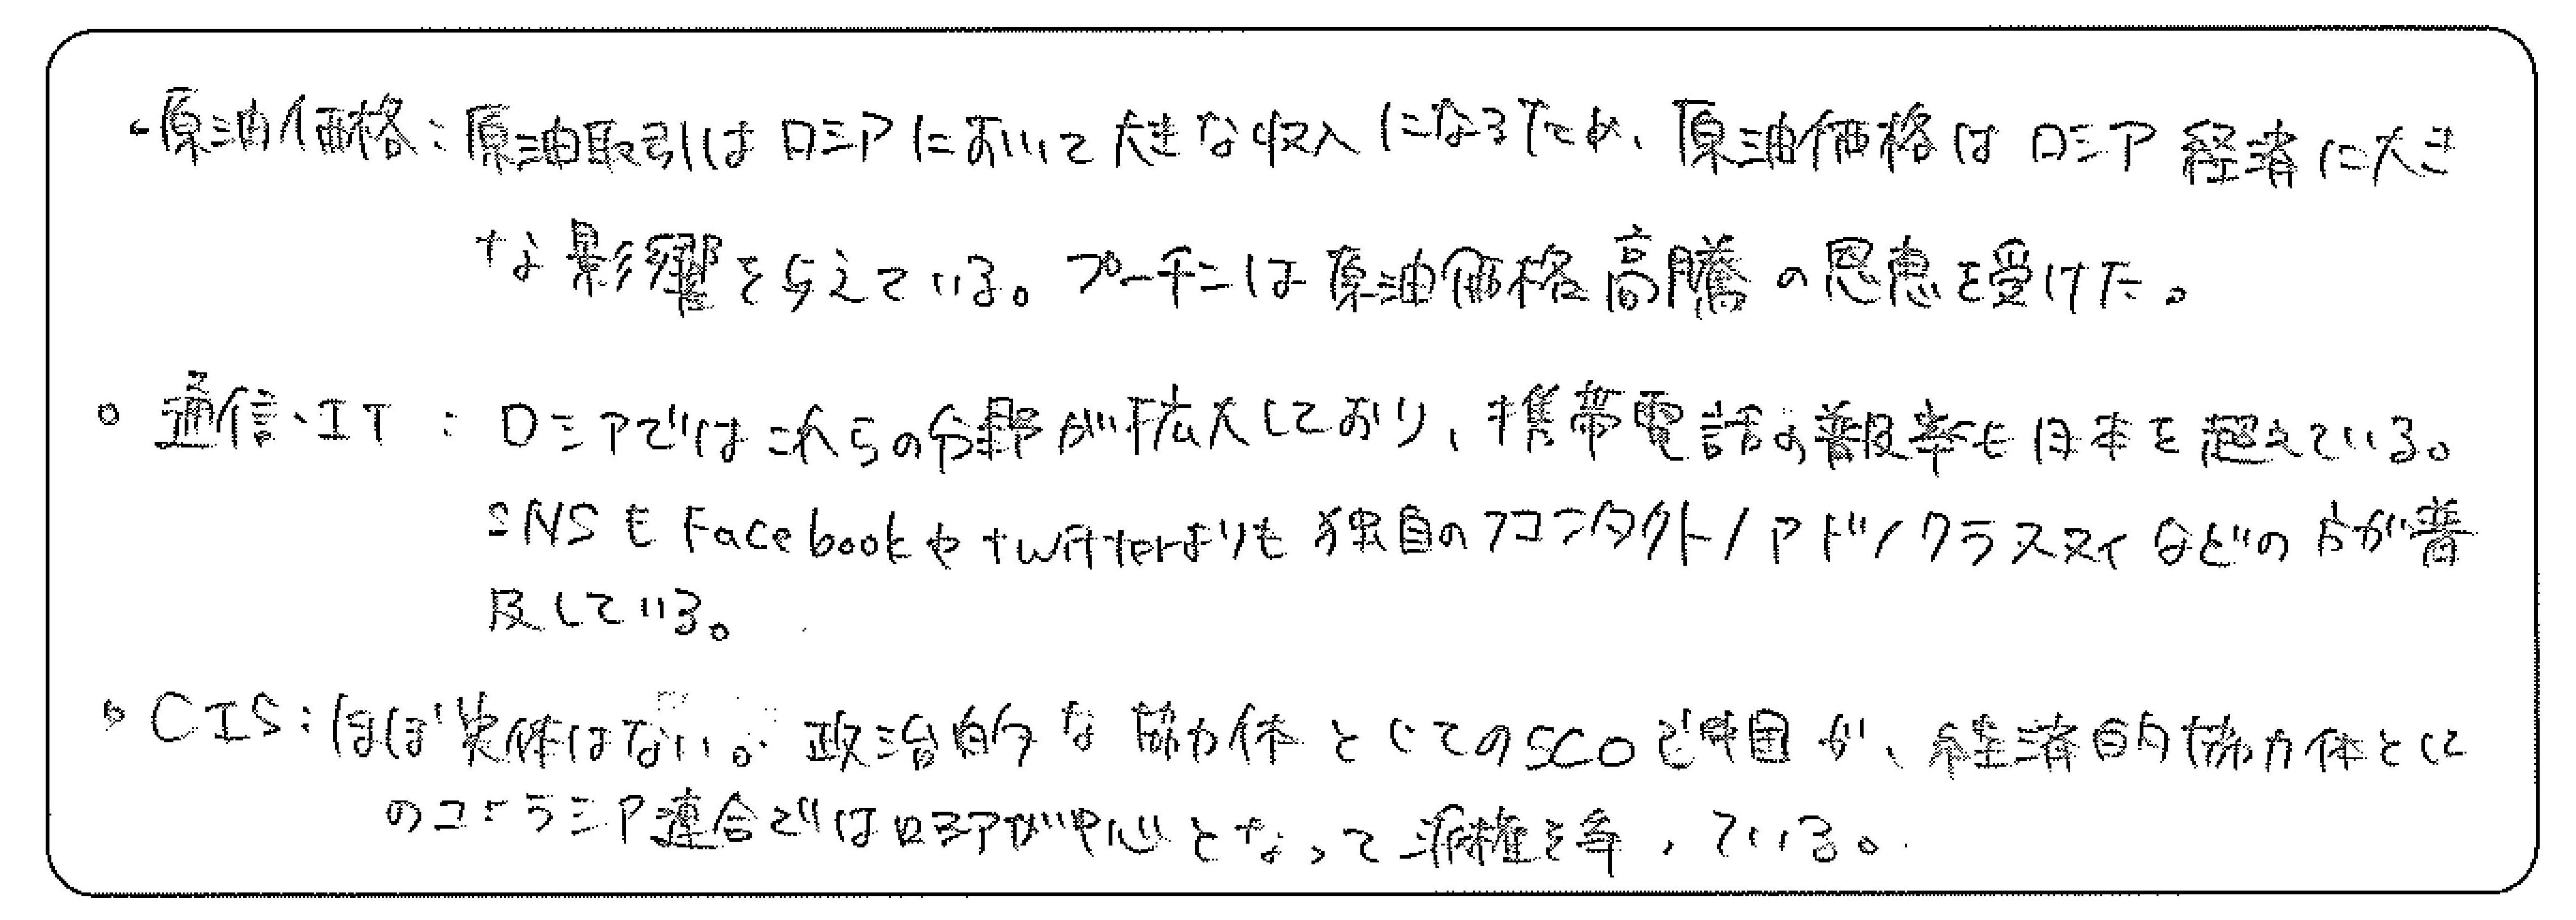 ・原油価格：原油取引はロシアにおいて大きな収入になるため、原油価格はロシア経済に大き
な影響を与えている。プーチンは原油価格高騰の恩恵を受けた。
・通信・IT：ロシアではこれらの分野が拡大しており、携帯電話の普及率も日本を超えている。
SNSもFacebookやtwitterよりも独自のフコンタクト/アドノクラスヌイなどの方が普
及している。
・CIS：ほぼ実体はない。政治的な協力体としてのSCOで中国が、経済的協力体として
のユーラシア連合ではロシアが中心となって覇権を争っている。